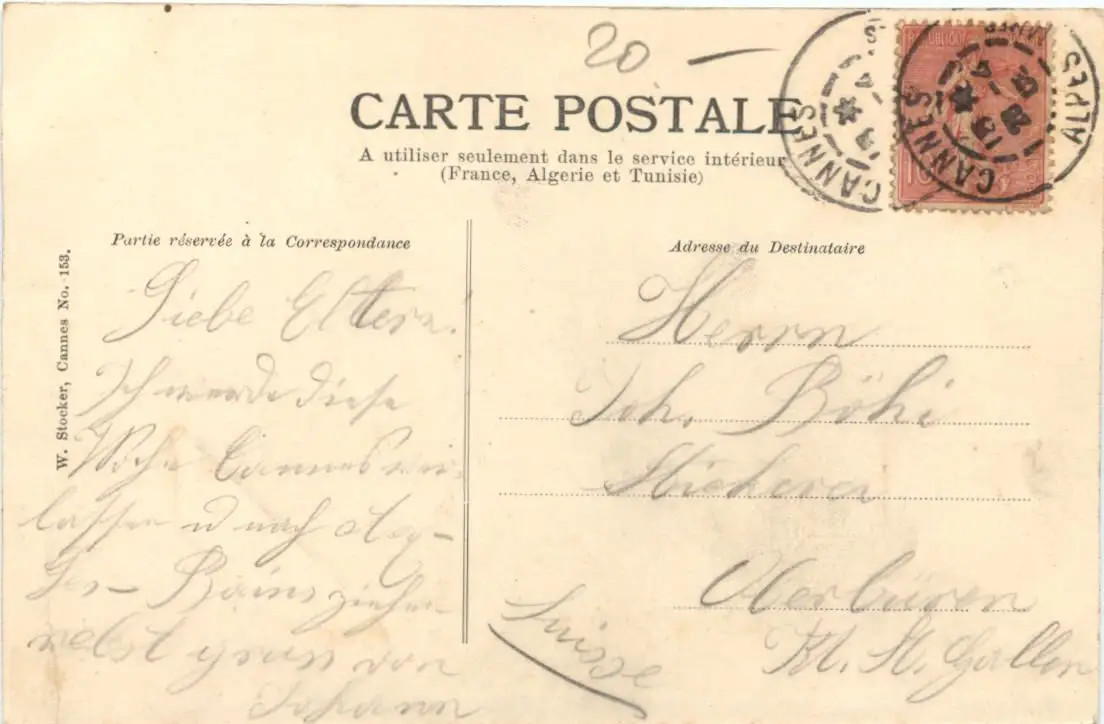 20 —
CARTE POSTALE
A utiliser seulement dans le service intérieur
(France, Algerie et Tunisie)
CANNES
CANNES
ALPES
REPUBLIQUE
10
Partie réservée à la Correspondance
Adresse du Destinataire
W. Stocker, Cannes No. 153.
Liebe Eltern!
Ich werde diese
Woche Cannes ver
lassen u nach
les-Bains ziehen
nebst gruss von
Johann
Herrn
Joh. Böhi
Stickerei
Oberbüren
Kt. St. Gallen
Suisse